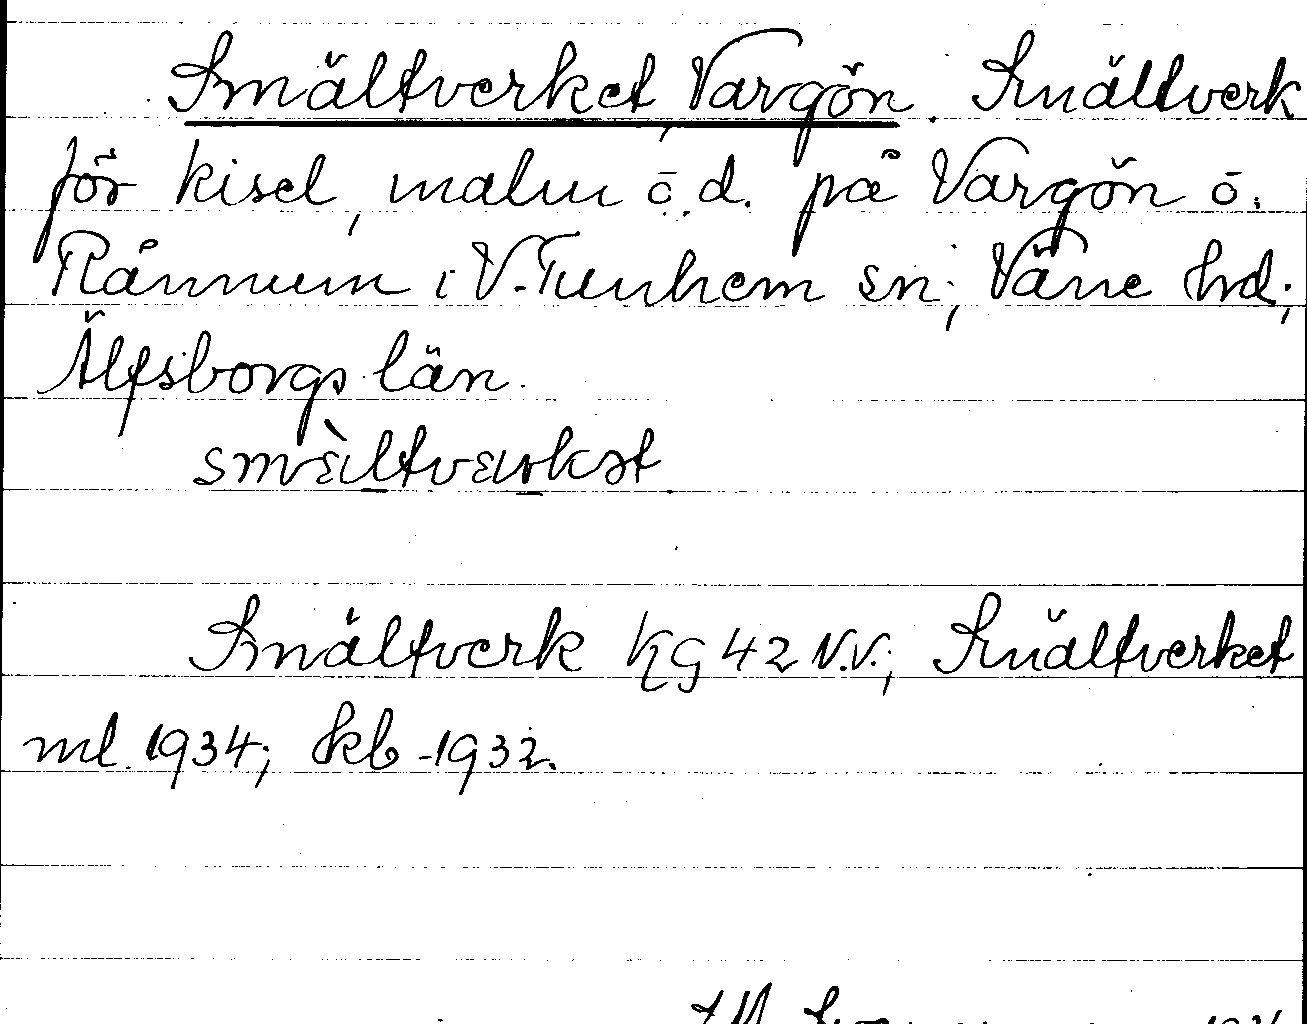 Smältverket, Vargön. Smältverk
för kisel, malm o.d. på Vargön o.
Rånnum i V. Tunhem sn; Väne hd;
Älfsborgs län.
smɛ̀ltvɛrkət
Smältverk KG 42 N.V.; Smältverket
ml. 1934; Skb -1932.